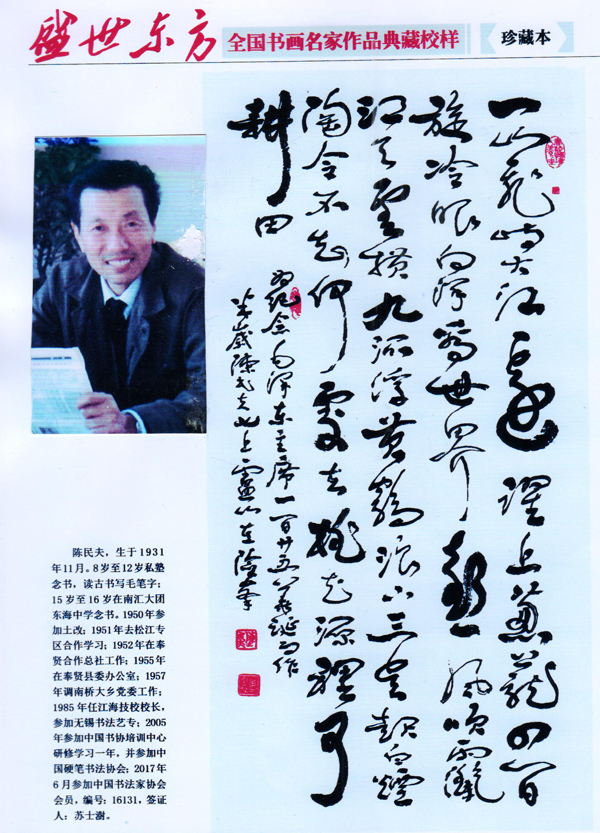 盛世东方
全国书画名家作品典藏校样
珍藏本
一山飛峙大江邊躍上葱蘢四百
旋冷眼向洋看世界熱風吹雨灑
江天雲横九派浮黄鶴浪下三吴起白煙
陶令不知何處去桃花源裡可
耕田
纪念毛泽东主席一百廿五诞而作
陈民夫北上庐山在险峯
陈民夫，生于1931
年11月。8岁至12岁私塾
念书，读古书写毛笔字；
15岁至16岁在南汇大团
东海中学念书。1950年参
加土改；1951年去松江专
区合作学习；1952年在奉
贤合作总社工作；1955年
在奉贤县委办公室；1957
年调南桥大乡党委工作；
1985年任江海技校校长，
参加无锡书法艺专；2005
年参加中国书协培训中心
研修学习一年，并参加中
国硬笔书法协会；2017年
6月参加中国书法家协会
会员，编号：16131，签证
人：苏士澍。